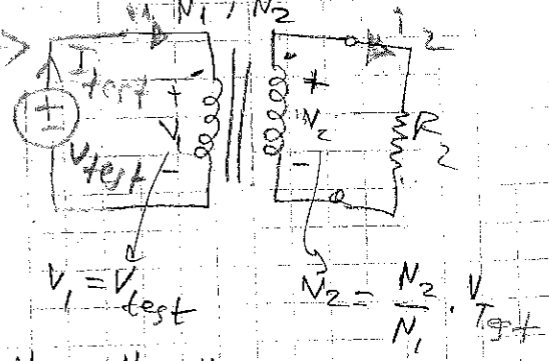 N1 : N2
I test
+
V1
-
V test
+
N2
-
R2
V1 = Vtest
N2 = N2/N1 . VTest